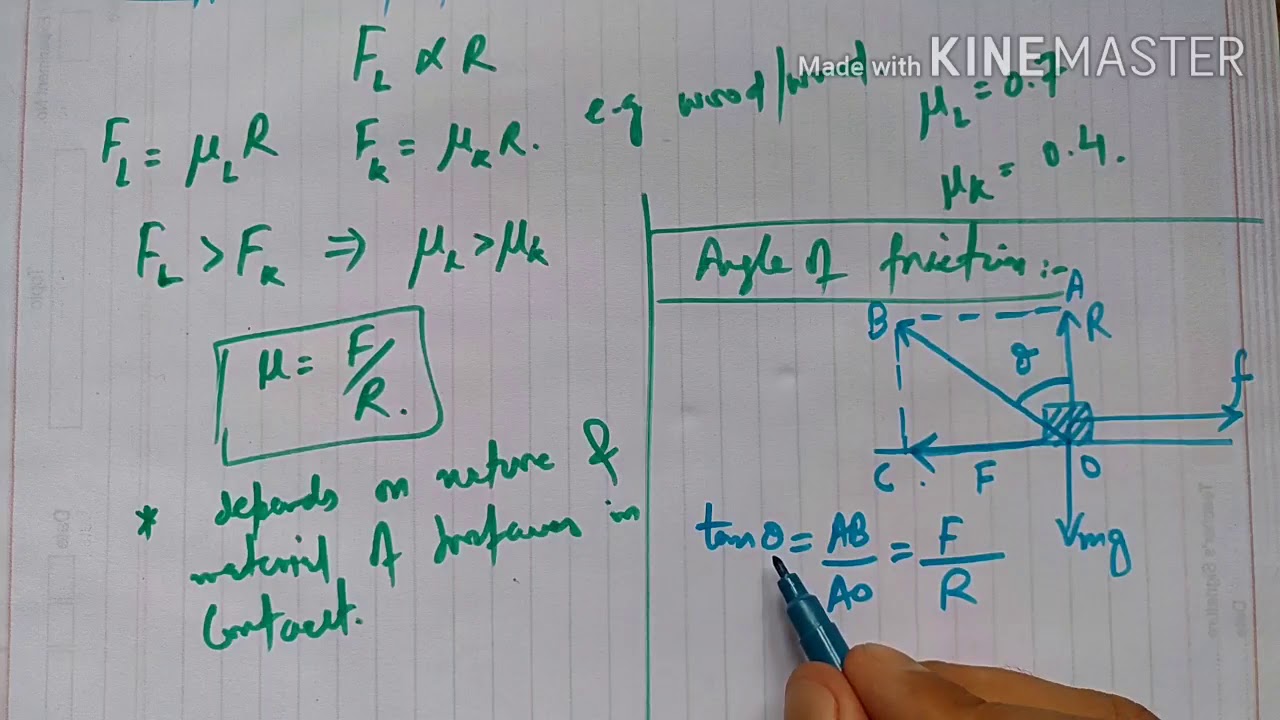 Made with KINEMASTER
F_L ∝ R
e.g wood/wood μ_L = 0.7
μ_K = 0.4.
F_L = μ_L R F_K = μ_K R.
F_L > F_K ⇒ μ_L > μ_K
μ = F/R.
* depends on nature &
material of surfaces in
Contact.
Angle of friction :-
A
B R
θ f
C F O
mg
tan θ = AB/AO = F/R